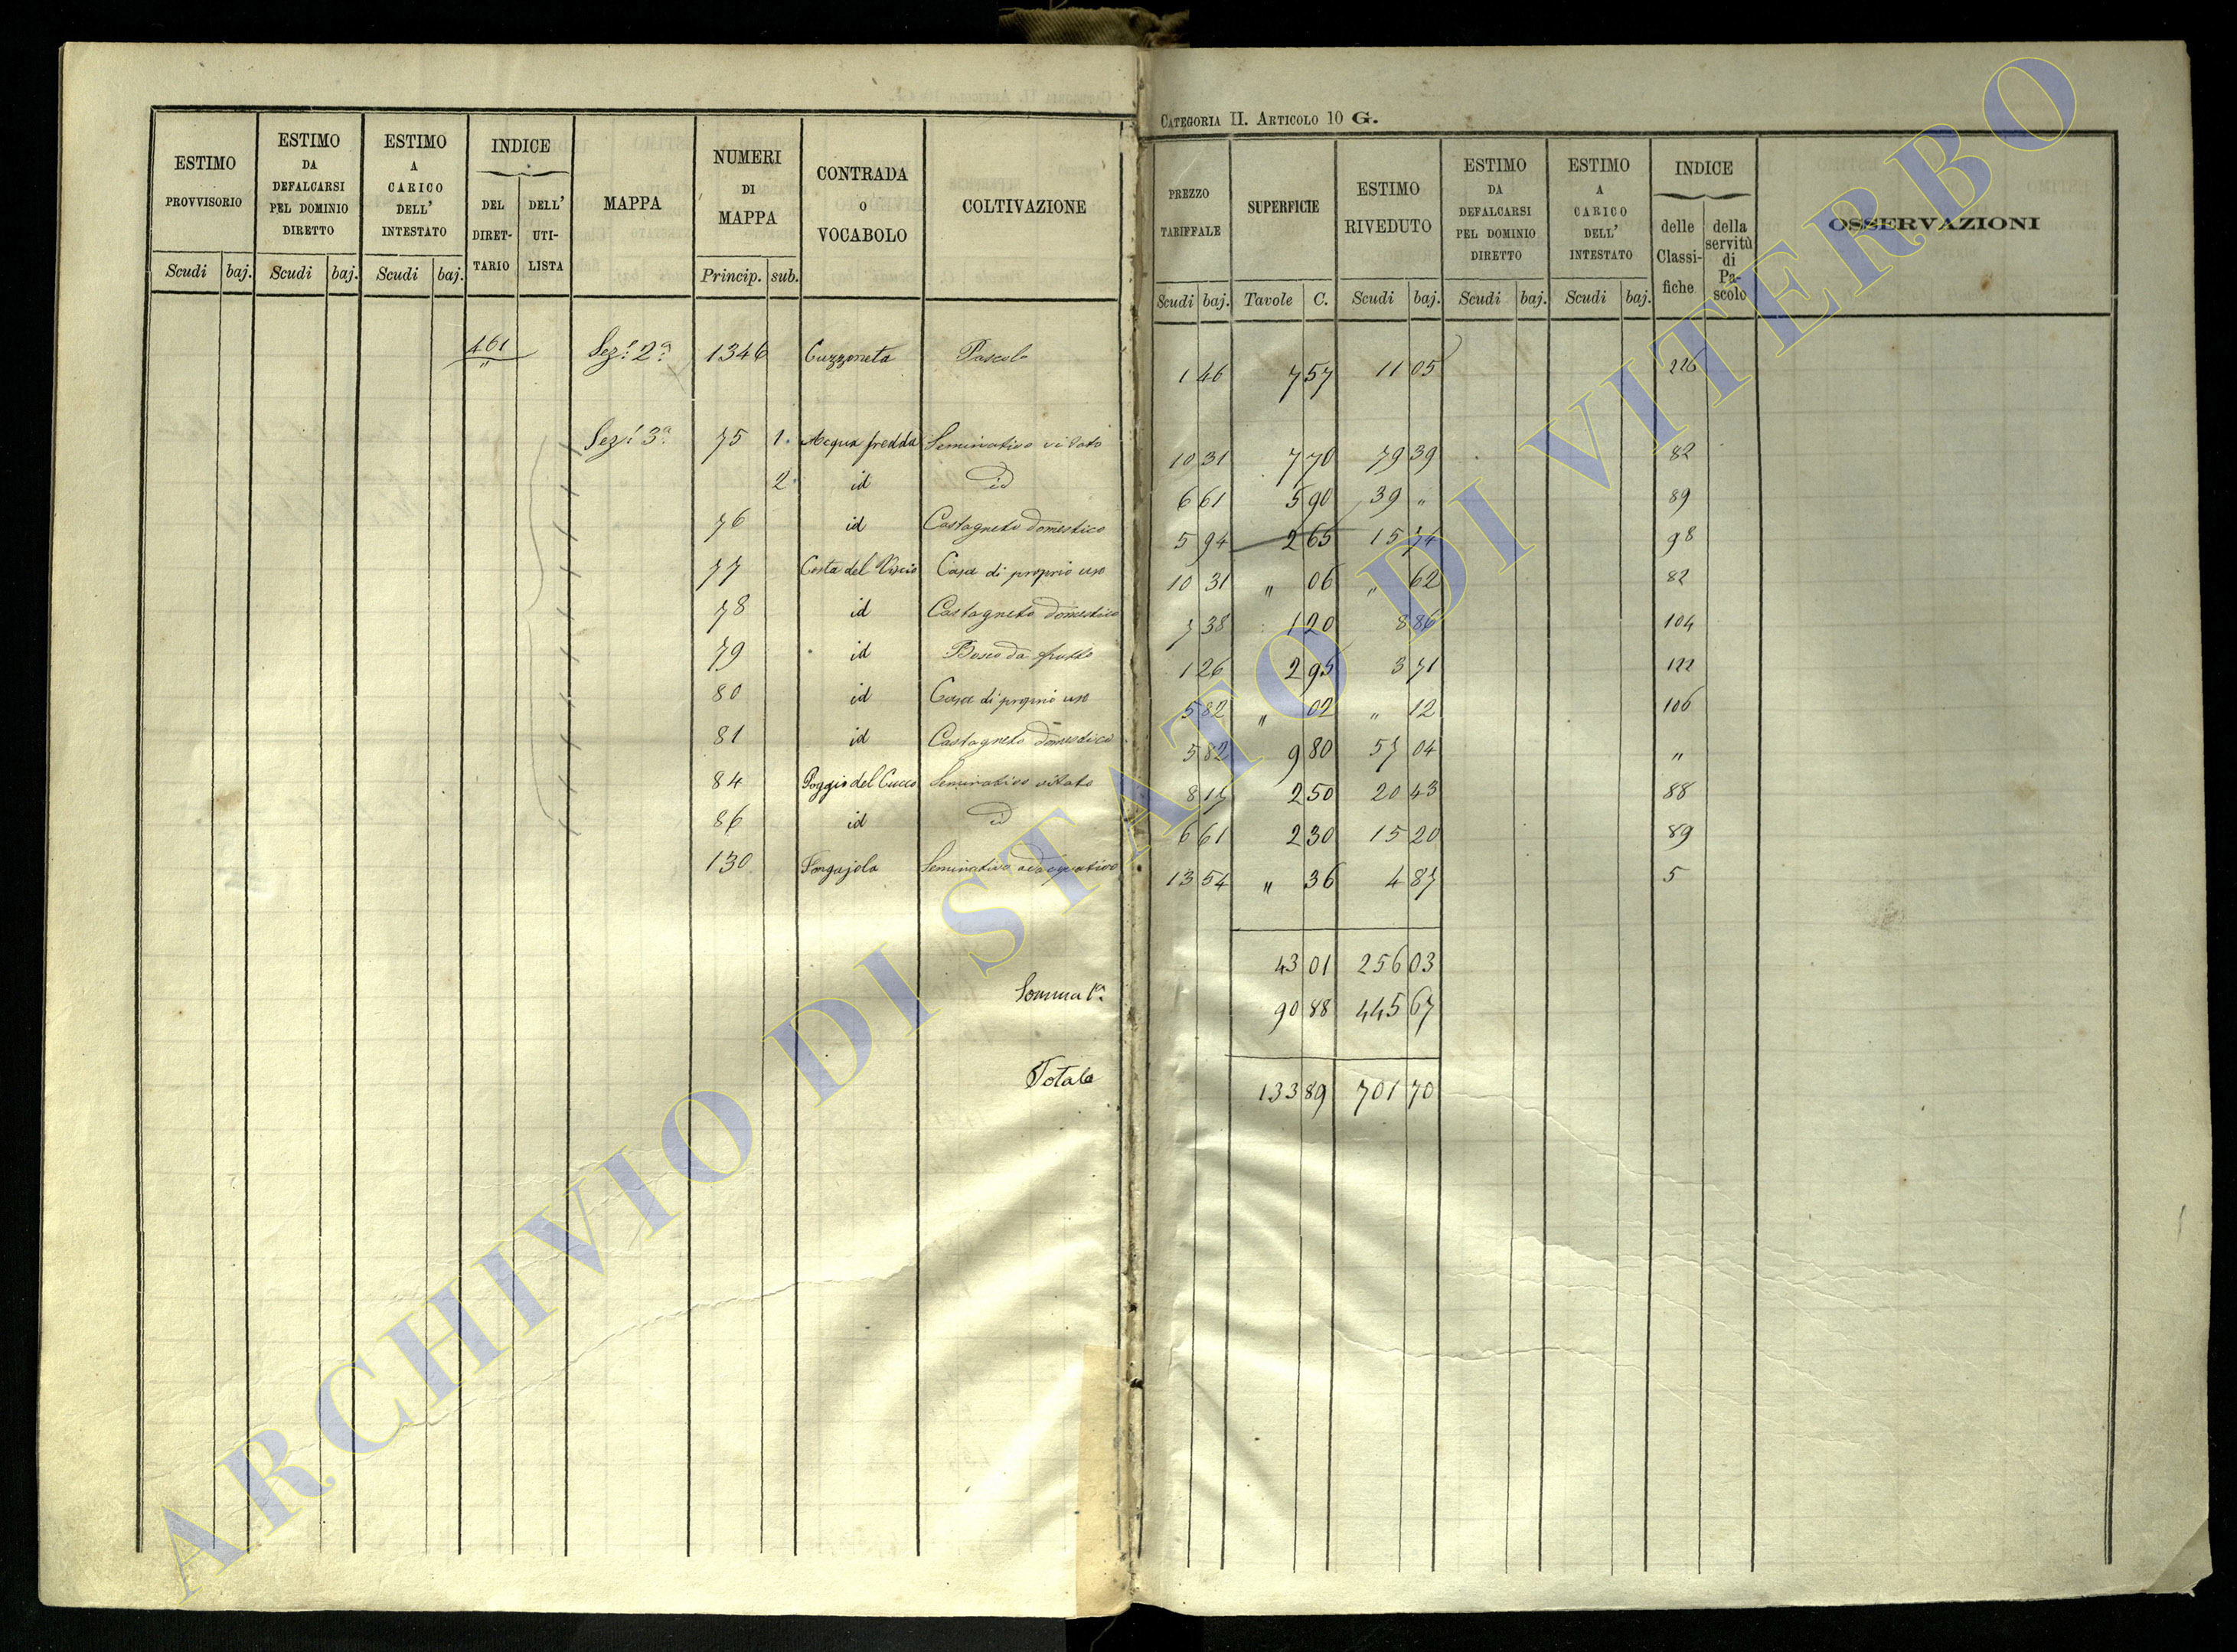 CATEGORIA II. ARTICOLO 10 G.
ESTIMO PROVVISORIO
ESTIMO DA DEFALCARSI PEL DOMINIO DIRETTO
ESTIMO A CARICO DELL' INTESTATO
INDICE
DEL DIRET-TARIO
DELL' UTI-LISTA
MAPPA
NUMERI DI MAPPA
CONTRADA O VOCABOLO
COLTIVAZIONE
PREZZO TARIFFALE
SUPERFICIE
ESTIMO RIVEDUTO
ESTIMO DA DEFALCARSI PEL DOMINIO DIRETTO
ESTIMO A CARICO DELL' INTESTATO
INDICE
delle Classi-fiche
della servitù di Pa-scolo
OSSERVAZIONI
Scudi baj. Scudi baj. Scudi baj. Princip. sub. Scudi baj. Tavole C. Scudi baj. Scudi baj. Scudi baj.
461 Sez.e 2a 1346 Cuzzoneta Pascolo 1 46 7 57 11 05 226
"
Sez.e 3a 75 1. Acqua fredda Seminativo vitato 10 31 7 70 79 39 82
2. id id 6 61 5 90 39 " 89
76 id Castagneto domestico 5 94 2 65 15 74 98
77 Costa del Casa di proprio uso 10 31 " 06 " 62 82
78 id Castagneto domestico 7 38 1 20 8 86 104
79 id Bosco da frutto 1 26 2 95 3 71 122
80 id Casa di proprio uso 5 82 " 02 " 12 106
81 id Castagneto domestico 5 82 9 80 57 04 "
84 Poggio del Cucco Seminativo vitato 8 17 2 50 20 43 88
86 id id 6 61 2 30 15 20 89
130 Seminativo adacquativo 13 54 " 36 4 87 5
43 01 256 03
Somma 1a. 90 88 445 67
Totale 133 89 701 70
ARCHIVIO DI STATO DI VITERBO